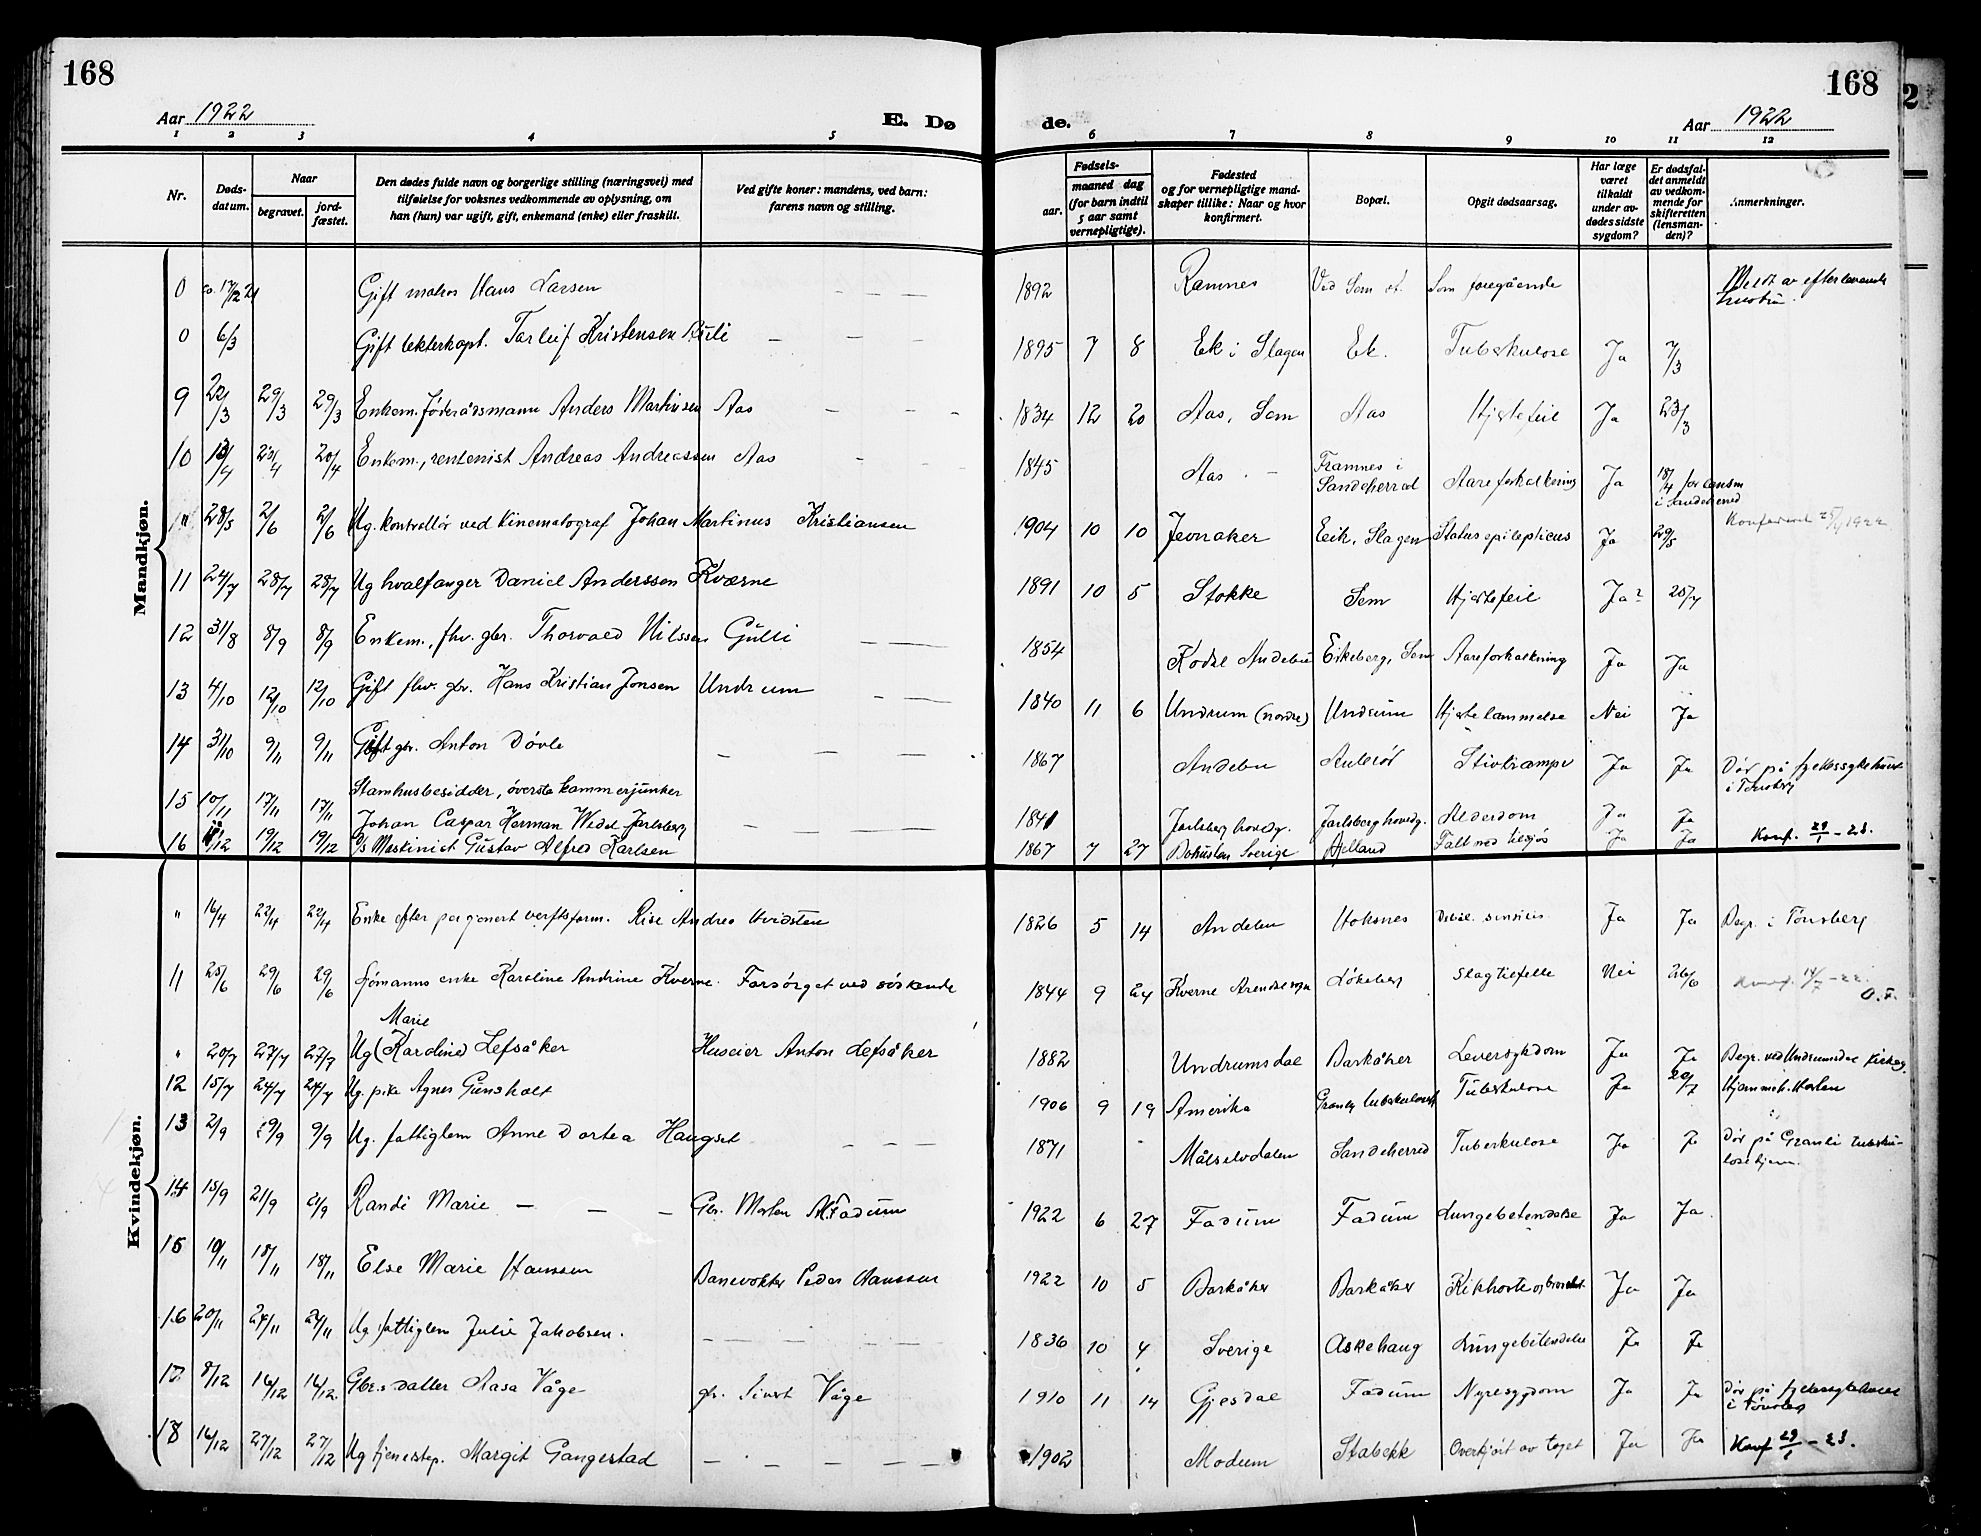 168
168
Aar 1922
E. Dø
de.
Aar 1922
1 2 3 4 5 6 7 8 9 10 11 12
Nr.
Døds-
datum.
Naar
begravet.
jord-
fæstet.
Den dødes fulde navn og borgerlige stilling (næringsvei) med
tilføielse for voksnes vedkommende av oplysning, om
han (hun) var ugift, gift, enkemand (enke) eller fraskilt.
Ved gifte koner: mandens, ved barn:
farens navn og stilling.
Fødsels-
aar.
maaned dag
(for barn indtil
5 aar samt
vernepligtige).
Fødested
og for vernepligtige mand-
skaper tillike: Naar og hvor
konfirmert.
Bopæl.
Opgit dødsaarsag.
Har læge
været
tilkaldt
under av-
dødes sidste
sygdom?
Er dødsfal-
det anmeldt
av vedkom-
mende for
skifteretten
(lensman-
den)?
Anmerkninger.
Mandkjøn.
0 17/2 21 Gift Hans Larsen — — — 1892 Ramnes Ved Sem st. Som foregående Meldt av efterlevende hustru.
0 6/3 Gift Tarleif Kristensen — — — 1895 7 8 Ek i Slagen Ek. Tuberkulose Ja 7/3
9 22/3 29/3 29/3 Enkem. føderådsmann Anders Martinsen Aas — — — 1834 12 20 Aas, Sem Aas Hjertefeil Ja 23/3
10 13/4 23/4 20/4 Enkem., rentenist Andreas Andreassen Aas — — — 1845 Aas. — Framnes i Sandeherred Aareforkalkning Ja 18/4 for lensm i Sandeherred
28/5 2/6 2/6 Ug. kontrollør ved kinematograf Johan Martinus Kristiansen 1904 10 10 Jevnaker Eeik, Slagen Status epilepticus Ja 29/5 1922
11 24/7 28/7 28/7 Ug hvalfanger Daniel Anderssen Kværne 1891 10 5 Stokke Sem Hjertefeil Ja? 25/7
12 31/8 8/9 8/9 Enkem., fhv. gbr. Thorvald Nilssen Gulli — — 1854 Kodal Andebu Eikeberg, Sem Aareforkalkning Ja Ja
13 4/10 12/10 12/10 Gift fhv. gbr. Hans Kristian Jonsen Undrum — — 1840 11 6 Undrum (nordre) Undrum Hjertelammelse Nei Ja
14 31/10 9/11 9/11 Gift gbr. Anton Døvle — — — 1867 Andebu Auleröd Stivkrampe Ja Ja Dör på fylkessykehuset i Tönsberg
15 10/11 17/11 17/11 Stamhusbesidder, överste kammerjunker
Johan Caspar Herman Wedel Jarlsberg — — — 1841 Jarlsberg hovedg. Jarlsberg hovedg. Alderdom Ja Ja
16 /12 19/12 19/12 Maskinist Gustav Alfred Karlsen 1867 7 27 Bohuslen Sverige Helland Falt ned tilsjøs Ja Ja Konf. 29/1 - 23.
Kvindekjøn.
" 16/4 22/4 22/4 Enke efter pensjonert verftsform. Rise Andrea Hvidsten 1826 5 14 Andebu Hoksnes senilis Ja Ja Begr. i Tönsberg
11 25/6 29/6 29/6 Sjømanns enke Karoline Andrine Kverne. Forsörget ved söskende 1844 9 24 Kverne Arendal sogn Lökeberg Slagtilfelle Nei 26/6 Konf. 14/7 - 22. O.F.
Marie
" 20/7 27/7 27/7 Ug (Karoline) Lefsåker Huseier Anton Lefsåker 1882 Undrumsdal Barkåker Leversykdom Ja Ja Begr. ved Undrumsdal kirke
12 15/7 24/7 24/7 Ug. pike Agnes Gunsholt 1906 9 19 Amerika Tuberkulose Ja 20/7
13 2/9 9/9 9/9 Ug. fattiglem Anne Dortea Haugset — — — 1871 Målselvdalen Sandeherred Tuberkulose Ja Ja Dör på Granli tuberku-
losehjem.
14 15/9 21/9 21/9 Randi Marie — — — Gbr. Morten Fadum 1922 6 27 Fadum Fadum Lungebetendelse Ja Ja
15 10/11 18/11 18/11 Else Marie Hanssen Banevokter Peder Hanssen 1922 10 5 Barkåker Barkåker Kikhoste og bronkit. Ja Ja
16 20/11 24/11 24/11 Ug. fattiglem Julie Jakobsen. — — — — 1836 10 4 Sverige Askehaug Lungebetendelse Ja Ja
17 8/12 14/12 14/12 Gbr.s datter Aasa Våge gbr. Sivert Våge 1910 11 14 Gjesdal Fadum Nyresygdom Ja Ja Dör på fylkessykehuset i Tönsberg
18 14/12 27/12 27/12 Ug tjenestep. Margit Gangestad — — — — — — 1902 Modum Stabekk Overkjört av toget Ja Ja Konf 29/1 - 23.